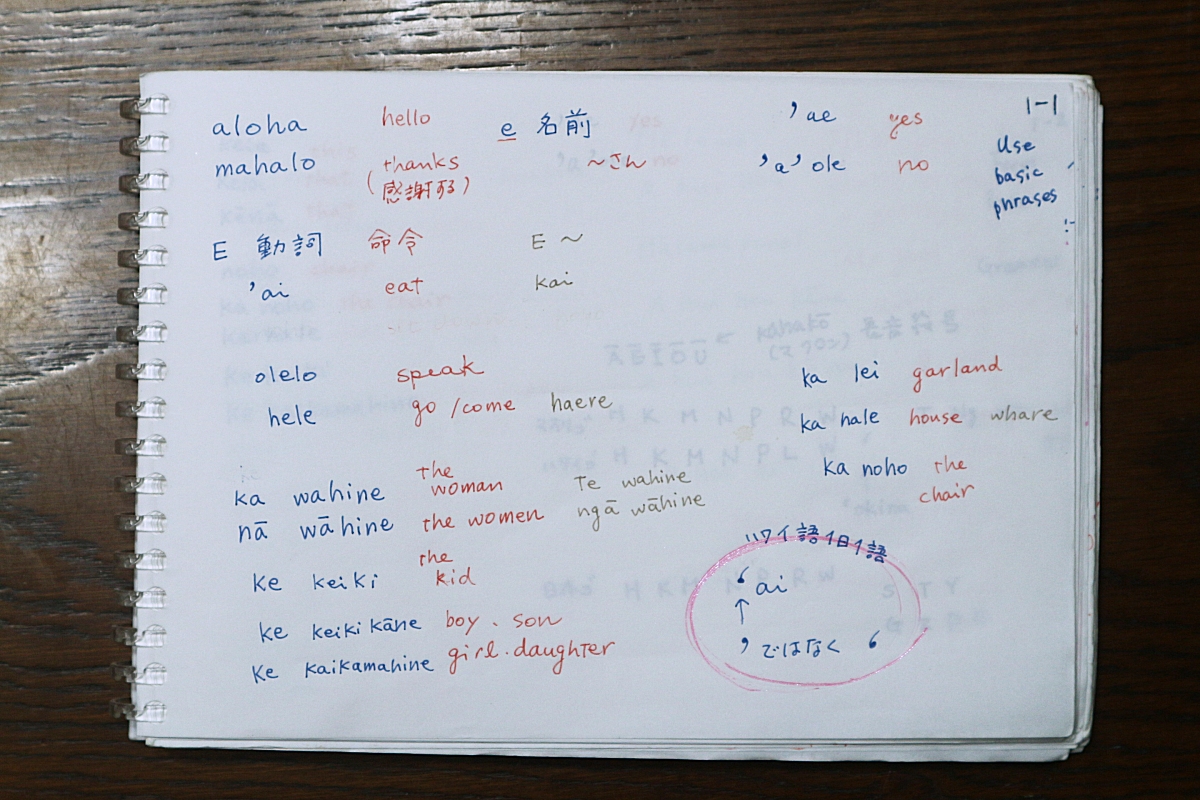 aloha hello e 名前 ’ae yes 1-1
mahalo thanks ～さん ’a’ole no Use
(感謝する) basic
phrases
E 動詞 命令 E ～
’ai eat kai
olelo speak ka lei garland
hele go/come haere ka hale house whare
ka wahine the woman Te wahine ka noho the chair
nā wāhine the women ngā wāhine
ke keiki the kid
ke keiki kāne boy・son
ke kaikamahine girl・daughter
ハワイ語1日1語
‘ai
↑
’ではなく ‘